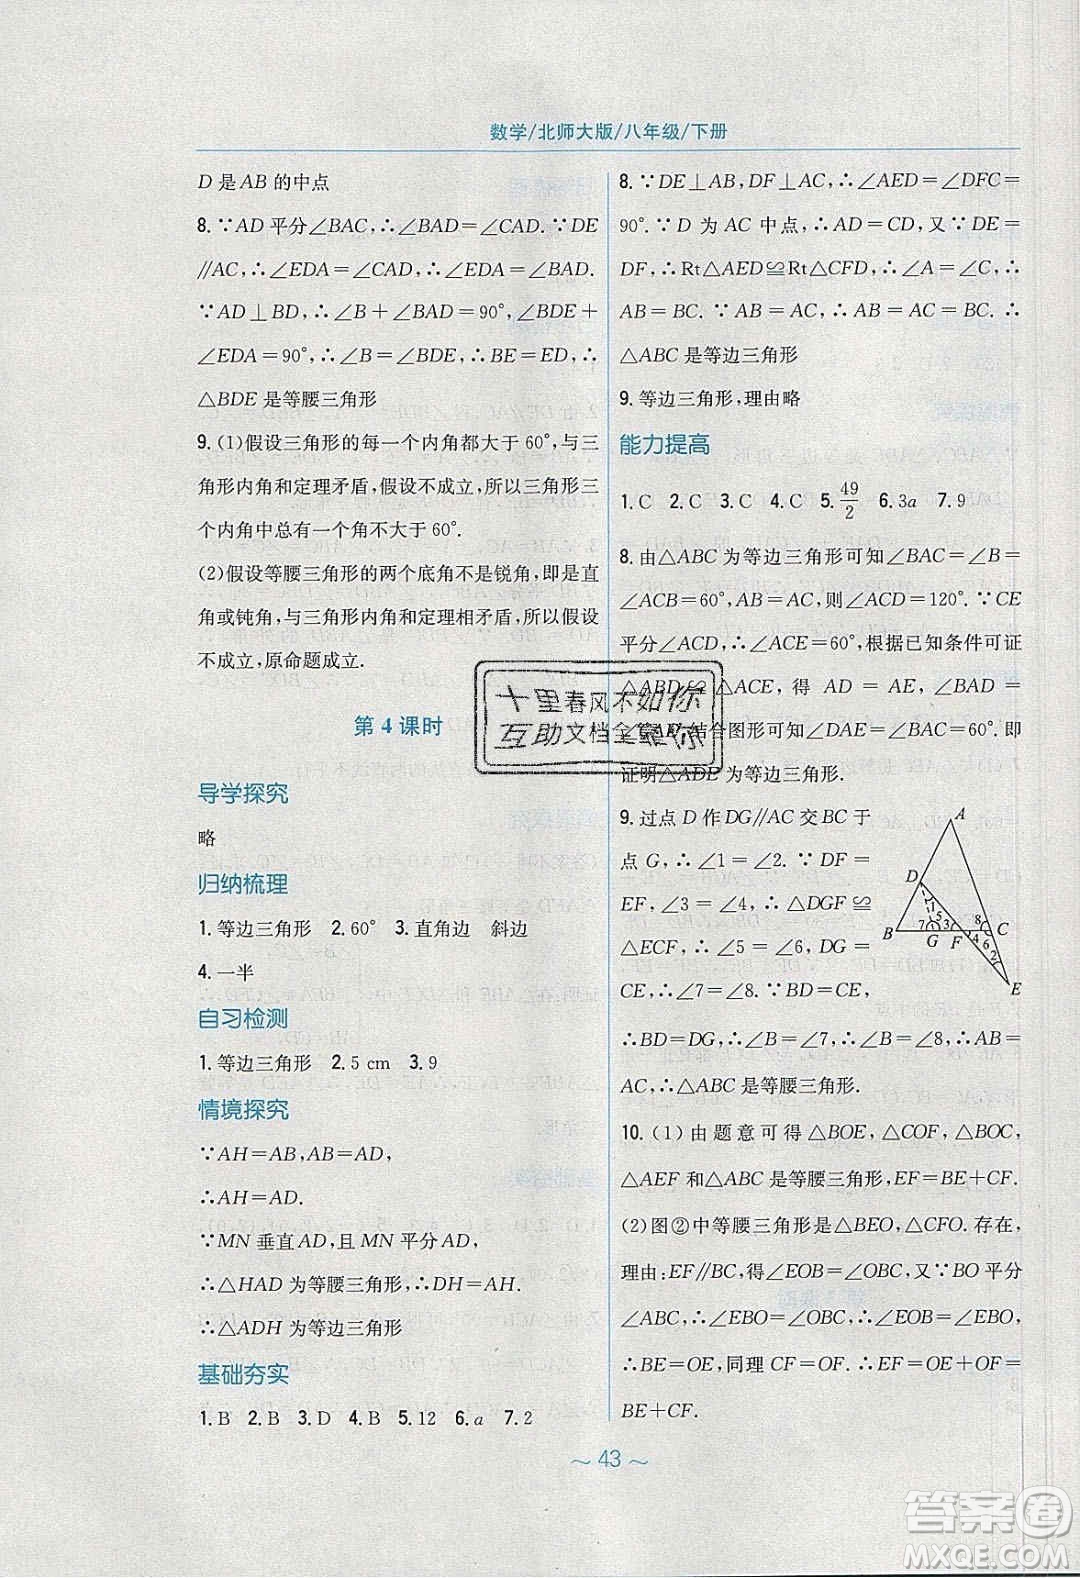 数学/北师大版/八年级/下册
D 是 AB 的中点
8. ∵AD 平分∠BAC,∴∠BAD=∠CAD. ∵DE
∥AC,∴∠EDA=∠CAD,∴∠EDA=∠BAD.
∵AD⊥BD,∴∠B+∠BAD=90°,∠BDE+
∠EDA=90°,∴∠B=∠BDE,∴BE=ED,∴
△BDE 是等腰三角形
9. (1)假设三角形的每一个内角都大于 60°,与三
角形内角和定理矛盾,假设不成立,所以三角形三
个内角中总有一个角不大于 60°.
(2)假设等腰三角形的两个底角不是锐角,即是直
角或钝角,与三角形内角和定理相矛盾,所以假设
不成立,原命题成立.
第 4 课时
导学探究
略
归纳梳理
1. 等边三角形 2. 60° 3. 直角边 斜边
4. 一半
自习检测
1. 等边三角形 2. 5 cm 3. 9
情境探究
∵AH=AB,AB=AD,
∴AH=AD.
∵MN 垂直 AD,且 MN 平分 AD,
∴△HAD 为等腰三角形,∴DH=AH.
∴△ADH 为等边三角形
基础夯实
1. B 2. B 3. D 4. B 5. 12 6. a 7. 2
8. ∵DE⊥AB,DF⊥AC,∴∠AED=∠DFC=
90°. ∵D 为 AC 中点,∴AD=CD,又∵DE=
DF,∴Rt△AED≌Rt△CFD,∴∠A=∠C,∴
AB=BC. ∵AB=AC,∴AB=AC=BC,∴
△ABC 是等边三角形
9. 等边三角形,理由略
能力提高
1. C 2. C 3. C 4. C 5. 49/2 6. 3a 7. 9
8. 由△ABC 为等边三角形可知∠BAC=∠B=
∠ACB=60°,AB=AC,则∠ACD=120°. ∵CE
平分∠ACD,∴∠ACE=60°,根据已知条件可证
△ABD≌△ACE,得 AD=AE,∠BAD=
结合图形可知∠DAE=∠BAC=60°. 即
证明△ADE 为等边三角形.
9. 过点 D 作 DG∥AC 交 BC 于
点 G,∴∠1=∠2. ∵DF=
EF,∠3=∠4,∴△DGF≌
△ECF,∴∠5=∠6,DG=
CE,∴∠7=∠8. ∵BD=CE,
∴BD=DG,∴∠B=∠7,∴∠B=∠8,∴AB=
AC,∴△ABC 是等腰三角形.
A
D
1
B
7
5
3
G
F
4
8
6
C
2
E
10. (1)由题意可得△BOE,△COF,△BOC,
△AEF 和△ABC 是等腰三角形,EF=BE+CF.
(2)图②中等腰三角形是△BEO,△CFO. 存在,
理由:EF∥BC,得∠EOB=∠OBC,又∵BO 平分
∠ABC,∴∠EBO=∠OBC,∴∠EOB=∠EBO,
∴BE=OE,同理 CF=OF. ∴EF=OE+OF=
BE+CF.
十里春风不如你
互助文档全靠你
~ 43 ~
答案圈
MXQE.COM